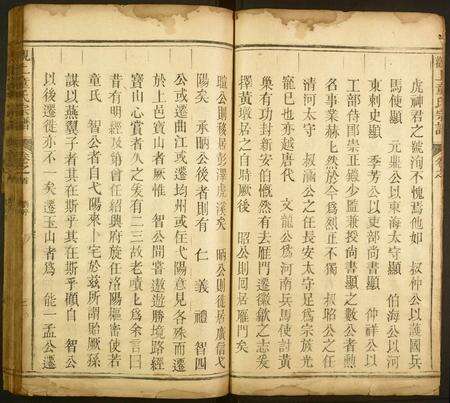 虎神君之號洵不愧焉他如 叔仲公以護國兵
馬使顯 元興公以東海太守顯 伯海公以河
東刺史顯 季芳公以吏部尚書顯 仲祥公以
工部侍郎崇正錫少監兼授尚書顯之數公者勲
名事業赫上然於今爲烈正不獨 叔昭公之任
清河太守 叔滿公之任長安太守足爲宗族光
寵已也越唐代 文龍公爲河南兵馬使討黃
巢有功封新安伯慨然有去雁門遷徽歙之志矣
擇黃墩居之自時厥後 昭公則同居雁門矣
瑄公則移居彭澤虎溪矣 昞公則徙居廣信弋
陽矣 承昞公後者則有 仁 義 禮 智四
公或遷曲江或遷均州或任弋陽意見各殊而遷
於上邑寶山者厥惟 智公間嘗遨遊勝境路經
寶山心賞者久之爰有二三故老嘖上爲余言曰
昔有明經及第曾任紹興府旋任洛陽樞密使若
童氏 智公者自弋陽來卜宅於兹所謂貽厥孫
謀以燕翼子者其在斯乎其在斯乎顧自 智公
以後遷徙亦不一矣遷玉山者爲 能一孟公遷